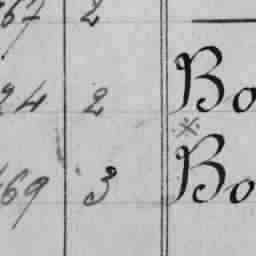 67 2
24 2 Bo
※
69 3 Bo